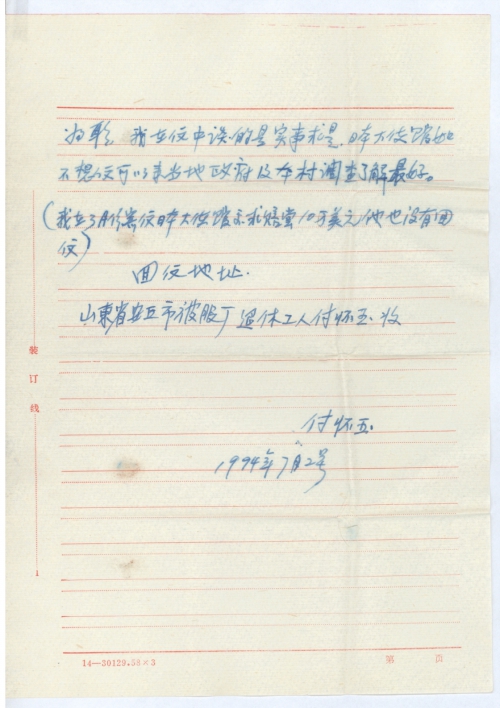 为耻，我在信中谈的是实事求是，日本大使馆如
不想信可以来当地政府及本村调查了解最好。
（我在3月份寄信日本大使馆要求赔尝10万美元他也没有回
信）
回信地址．
山东省安丘市被服厂退休工人付怀玉．收
付怀玉．
1994年7月2号
装订线
14—30129.58×3
第 页